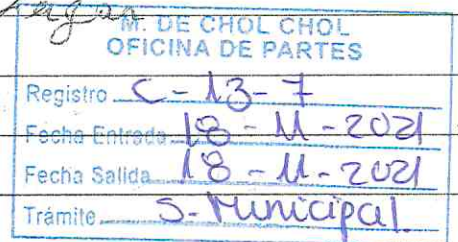 M. DE CHOL CHOL
OFICINA DE PARTES
Registro C-13-7
Fecha Entrada 18-11-2021
Fecha Salida 18-11-2021
Trámite S-Municipal.